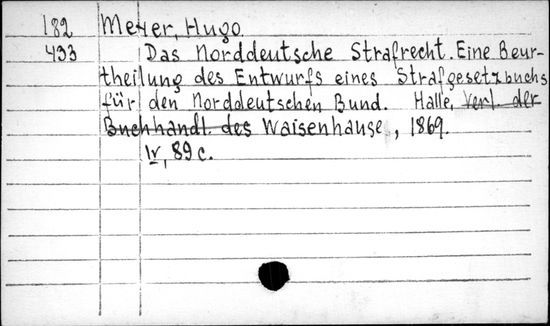 182 Meyer, Hugo
433 Das Norddeutsche Strafrecht. Eine Beur-
theilung des Entwurfs eines Strafgesetzbuchs
für den Norddeutschen Bund. Halle, Verl. der
Buchhandl. des Waisenhause, 1869.
IV, 89 c.